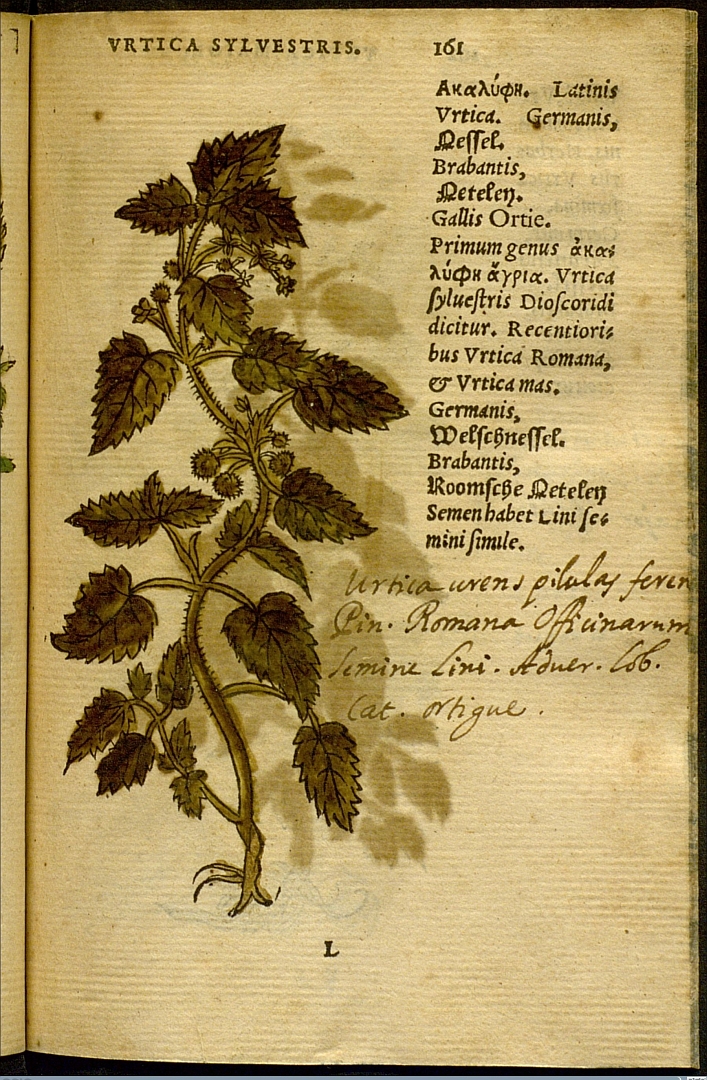 VRTICA SYLVESTRIS. 161
Ακαλύφη. Latinis
Vrtica. Germanis,
Nessel.
Brabantis,
Netelen.
Gallis Ortie.
Primum genus ἀκα-
λύφη ἄγρια. Vrtica
syluestris Dioscoridi
dicitur. Recentiori-
bus Vrtica Romana,
& Vrtica mas.
Germanis,
Welschnessel.
Brabantis,
Roomsche Netelen
Semen habet Lini se-
mini simile.
Urtica urens pilulas feren
Pin. Romana Officinarum
semine Lini. Adver. Lob.
Cat. ortigue.
L